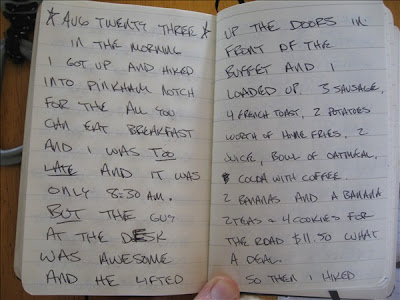 * AUG TWENTY THREE *
IN THE MORNING
I GOT UP AND HIKED
INTO PINKHAM NOTCH
FOR THE ALL YOU
CAN EAT BREAKFAST
AND I WAS TOO
LATE AND IT WAS
ONLY 8:30 AM.
BUT THE GUY
AT THE DESK
WAS AWESOME
AND HE LIFTED
UP THE DOORS IN
FRONT OF THE
BUFFET AND I
LOADED UP. 3 SAUSAGE,
4 FRENCH TOAST, 2 POTATOES
WORTH OF HOME FRIES, 2
JUICE, BOWL OF OATMEAL,
COCOA WITH COFFEE
2 BANANAS AND A BANANA
2 TEAS + 4 COOKIES FOR
THE ROAD $11.50 WHAT
A DEAL.
SO THEN I HIKED